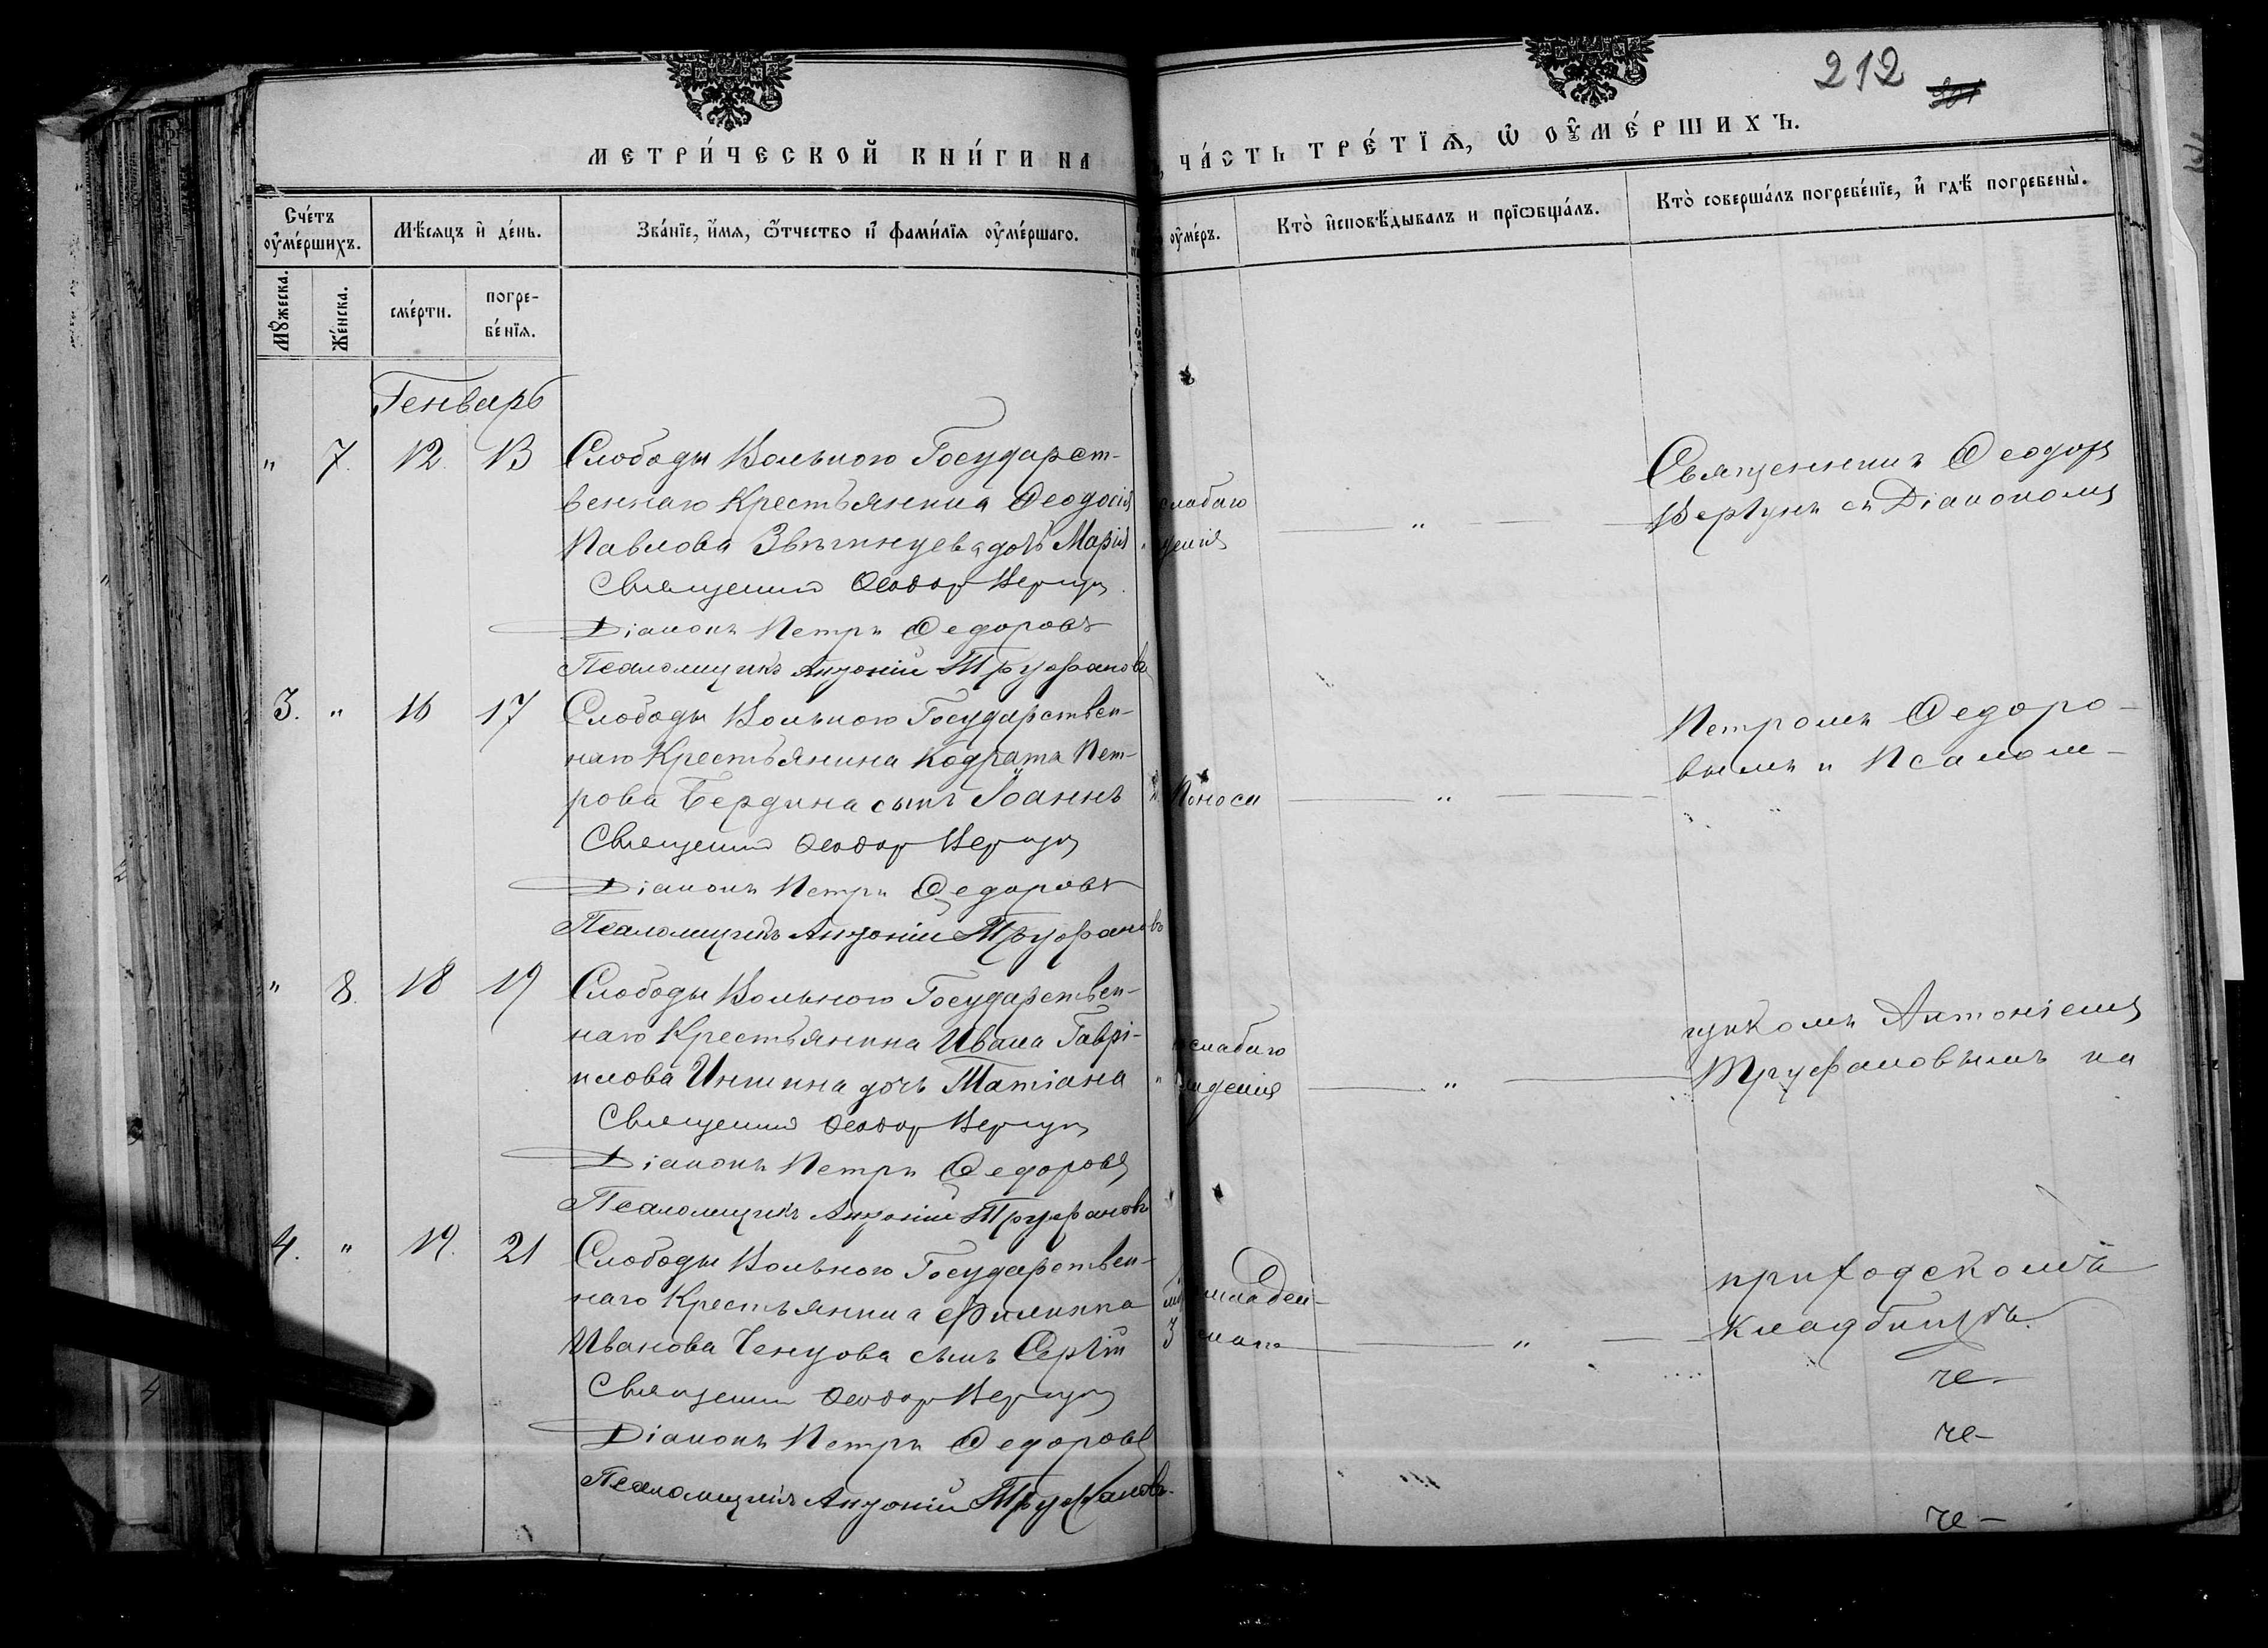 212
МЕТРИ́ЧЕСКОЙ КНИ́ГИ НА
ЧА́СТЬ ТРЕ́ТЇѦ, Ѡ҆ ОУ҆МЕ́РШИХЪ.
Сче́тъ оу҆ме́ршихъ.
Мѣ́сяцъ и҆ де́нь.
Зва́нїе, и҆́мя, ѿ́тчество и҆ фами́лїя оу҆ме́ршаго.
оу҆ме́ръ.
Кто̀ и҆сповѣ́дывалъ и прїѡбща́лъ.
Кто̀ соверша́лъ погребе́нїе, и҆ гдѣ̀ погребены̀.
Мꙋ́жеска.
Же́нска.
сме́рти.
погре-
бе́нїя.
Генварь
" 7. 12. 13 Слободы Вольного Государст-
веннаго Крестьянина Ѳеодосія
Павлова Звягинцева дочь Марія
Священник Ѳеодор Вергун
Діаконъ Петръ Ѳедоровъ
Псаломщикъ Антоній Труфановъ
слабаго
"
Священникъ Ѳеодоръ
Вергунъ съ Діакономъ
3. " 16 17 Слободы Вольного Государствен-
наго Крестьянина Кодрата Пет-
рова Бердина сынъ Іоаннъ
Священник Ѳеодор Вергун
Діаконъ Петръ Ѳедоровъ
Псаломщикъ Антоній Труфановъ
Поноса
"
Петромъ Ѳедоро-
вымъ и Псалом-
" 8. 18 19 Слободы Вольного Государствен-
наго Крестьянина Ивана Гаврі-
илова Иншина дочь Татіана
Священник Ѳеодор Вергун
Діаконъ Петръ Ѳедоровъ
Псаломщикъ Антоній Труфановъ
слабаго
"
щикомъ Антоніемъ
Труфановымъ на
4. " 19. 21 Слободы Вольного Государствен-
наго Крестьянина Филиппа
Иванова Ченцова сынъ Сергій
Священник Ѳеодор Вергун
Діаконъ Петръ Ѳедоровъ
Псаломщикъ Антоній Труфановъ
младен-
"
приходскомъ
кладбищѣ.